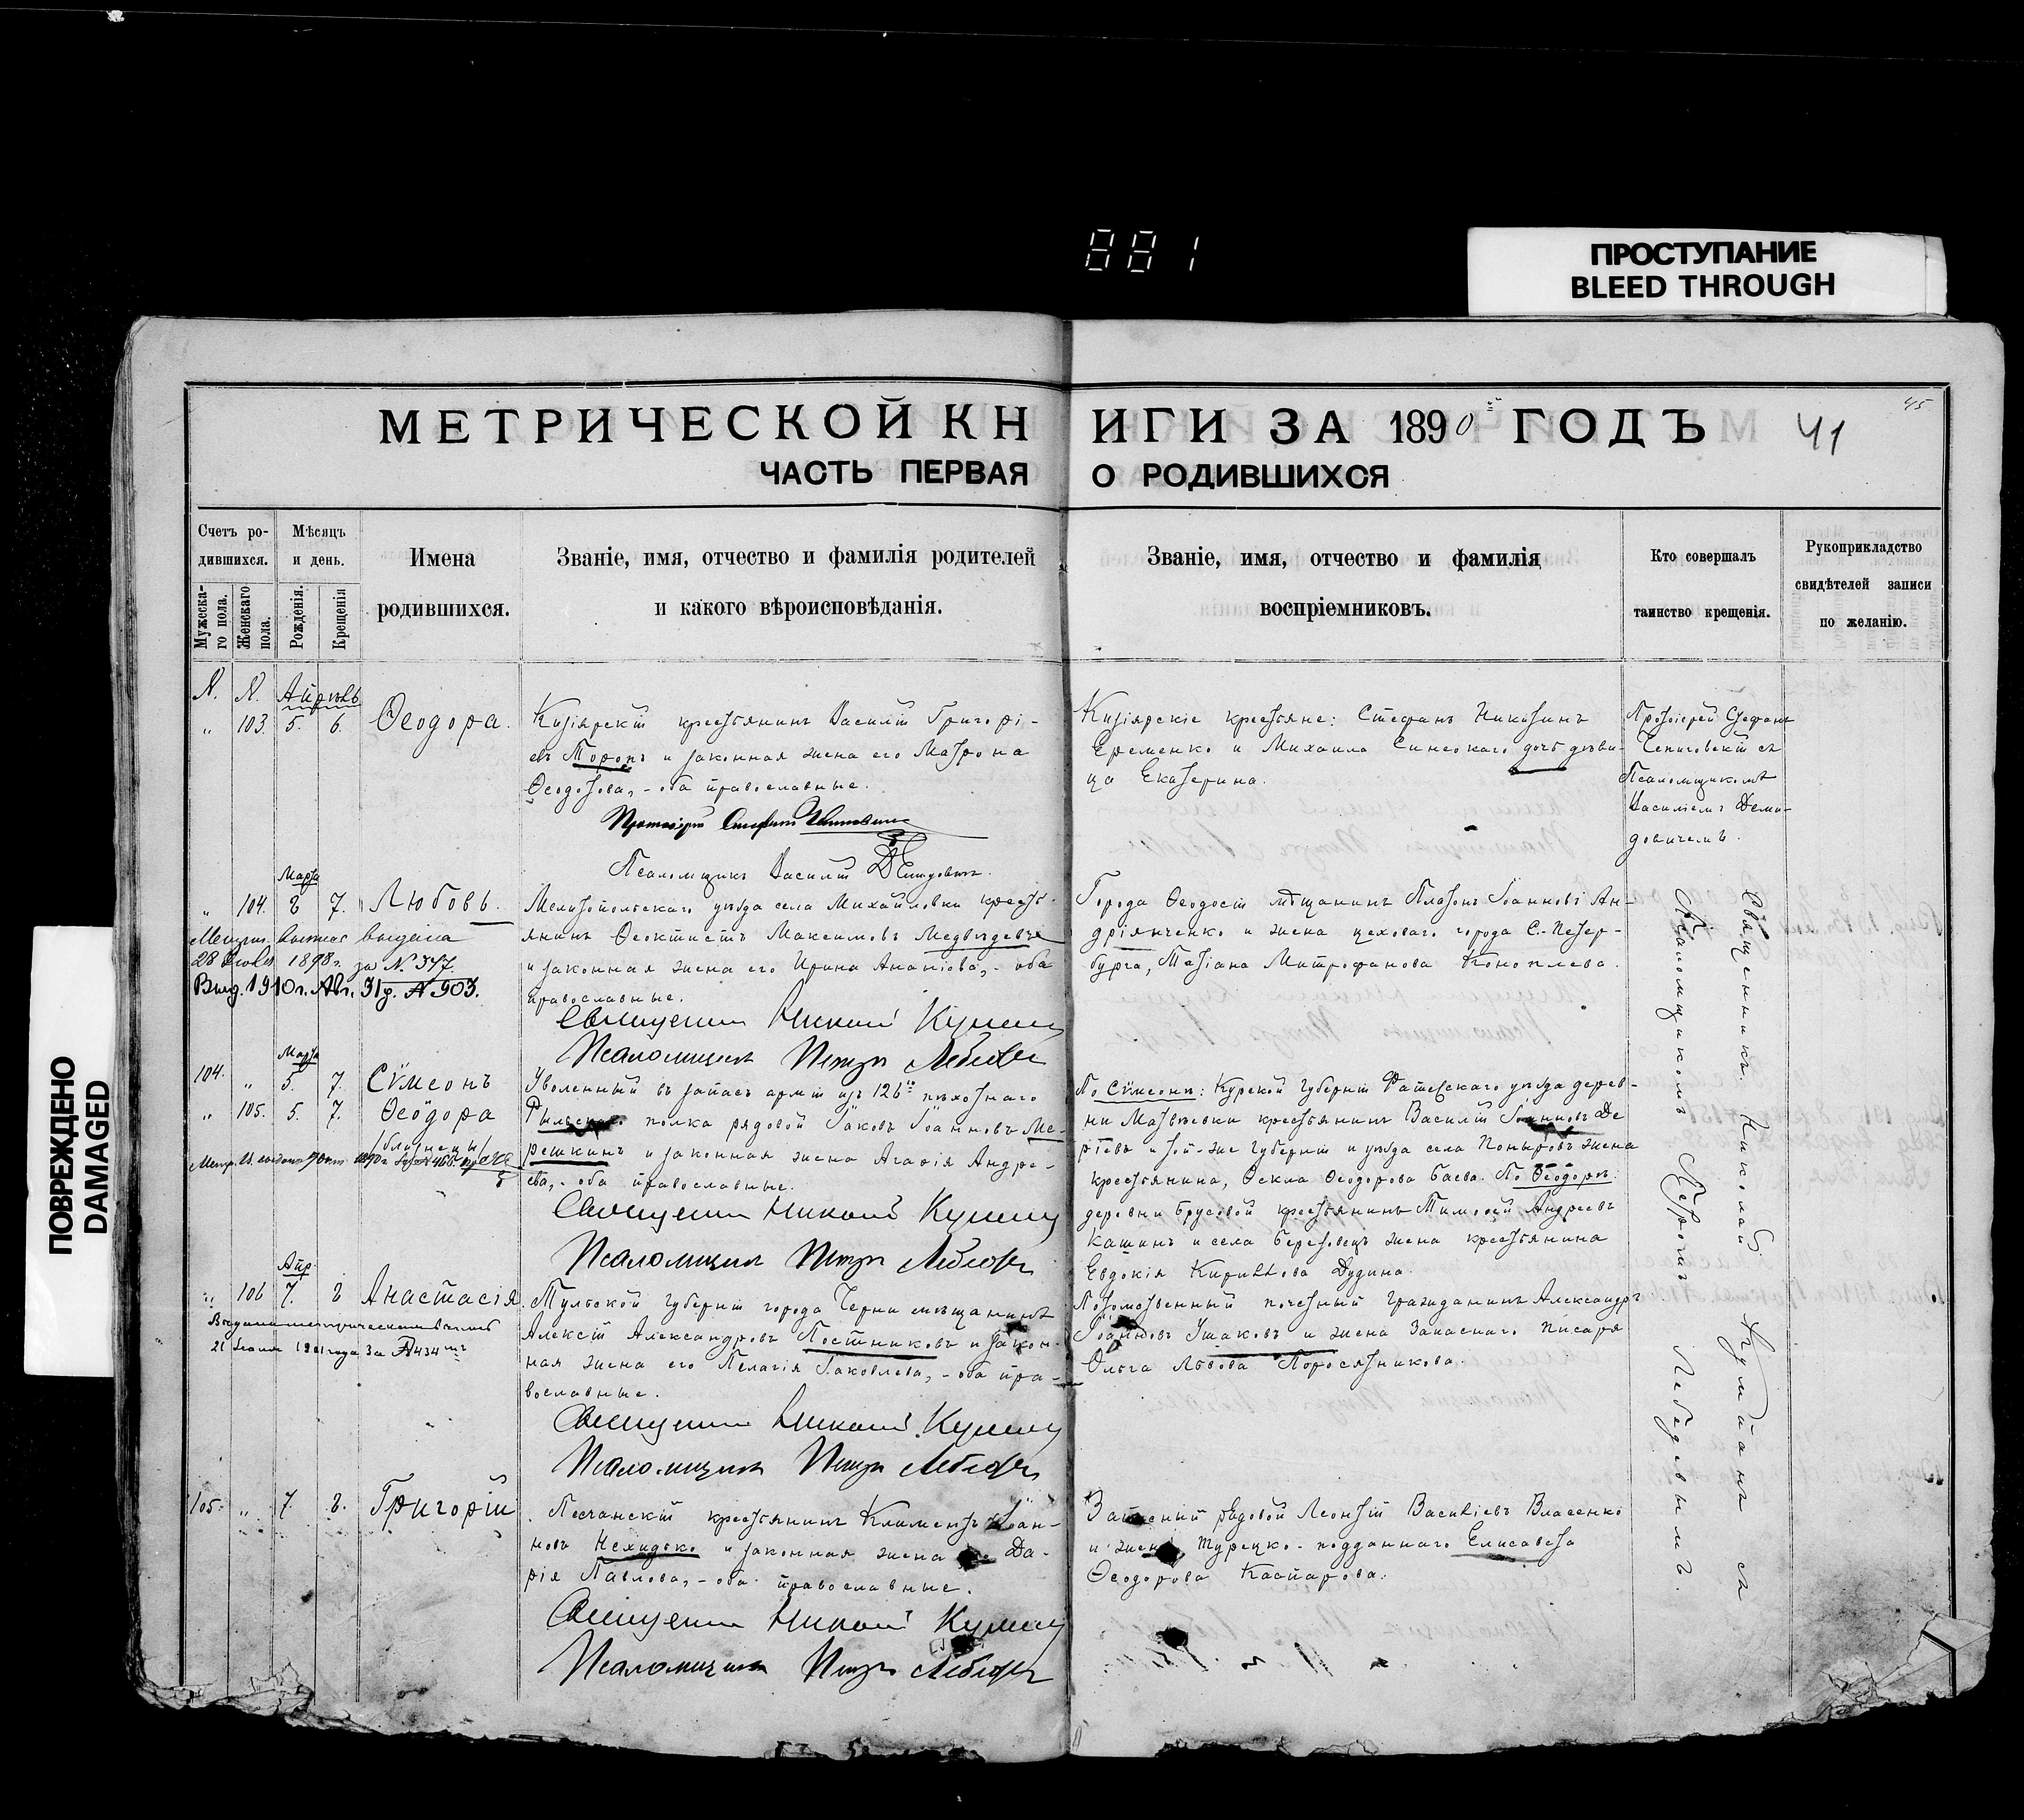 881
ПРОСТУПАНИЕ
BLEED THROUGH
ПОВРЕЖДЕНО
DAMAGED
МЕТРИЧЕСКОЙ КНИГИ ЗА 1890 ГОДЪ 41
45
ЧАСТЬ ПЕРВАЯ О РОДИВШИХСЯ
Счетъ ро-
дившихся.
Мужеска-
го пола.
Женскаго
пола.
Мѣсяцъ
и день.
Рожденія.
Крещенія
Имена
родившихся.
Званіе, имя, отчество и фамилія родителей
и какого вѣроисповѣданія.
Званіе, имя, отчество и фамилія
воспріемниковъ.
Кто совершалъ
таинство крещенія.
Рукоприкладство
свидѣтелей записи
по желанію.
№. №. Апрѣль
„ 103. 5. 6. Ѳеодора.
крестьянинъ Василій Григорі-
евъ Моронъ и законная жена его Матрона
Ѳеодотова, - оба православные.
Псаломщикъ Василій Демидовичъ.
крестьяне: Стефанъ
Еременко и Михаила дочь дѣви-
ца Екатерина.
Протоіерей Стефанъ
съ
Псаломщикомъ
Василіемъ Деми-
довичемъ.
Марта
„ 104. 2 7. Любовь.
выдана
28 1898 г. за № 377.
Выд. 1910 г. Авг. 31 д. № 903.
Мелитопольскаго уѣзда села Михайловки кресть-
янинъ Ѳеоктистъ Максимовъ Медвѣдевъ
и законная жена его Ирина Ананіова, - оба
православные.
Священникъ Николай
Псаломщикъ Петръ Лебедевъ
Города Ѳеодосіи мѣщанинъ Платонъ Іоанновъ Ан-
дріянченко и жена цеховаго города С.-Петер-
бурга, Татіана Митрофанова Коноплева.
Марта
104. „ 5. 7. Сѵмеонъ
„ 105. 5. 7. Ѳеодора
/близнецы/
Уволенный въ запасъ арміи изъ 126го пѣхотнаго
Рыльскаго полка рядовой Іаковъ Іоанновъ Ме-
решкинъ и законная жена Агафія Андре-
ева, - оба православные.
Священникъ Николай
Псаломщикъ Петръ Лебедевъ
По Сѵмеонѣ: Курской губерніи Фатежскаго уѣзда дерев-
ни Матвѣевки крестьянинъ Василій Іоанновъ Де
и той-же губерніи и уѣзда села Поныровъ жена
крестьянина, Ѳекла Ѳеодорова Баева. По Ѳеодорѣ:
деревни Брусовой крестьянинъ Тимоѳей Андреевъ
Кашинъ и села Березовецъ жена крестьянина
Евдокія Кириллова Дудина.
Апр.
„ 106 7. 8 Анастасія
21 1901 года за № 434
Тульской губерніи города Черни мѣщанинъ
Алексій Александровъ Постниковъ и закон-
ная жена его Пелагія Іаковлева, - оба пра-
вославные.
Священникъ Николай
Псаломщикъ Петръ Лебедевъ
Потомственный почетный гражданинъ Александръ
Іоанновъ Ушаковъ и жена Запаснаго писаря
Ольга Львова Поросятникова.
105. „ 7. 8. Григорій
Песчанскій крестьянинъ Климентъ Іоан-
новъ Нехидько и законная жена его Да-
рія Павлова, - оба православные.
Священникъ Николай
Псаломщикъ Петръ Лебедевъ
Запасный рядовой Леонтій Василіевъ Власенко
и жена турецко-подданнаго Елисавета
Ѳеодорова Каспарова.
Священникъ Николай съ
Псаломщикомъ Петромъ Лебедевымъ.